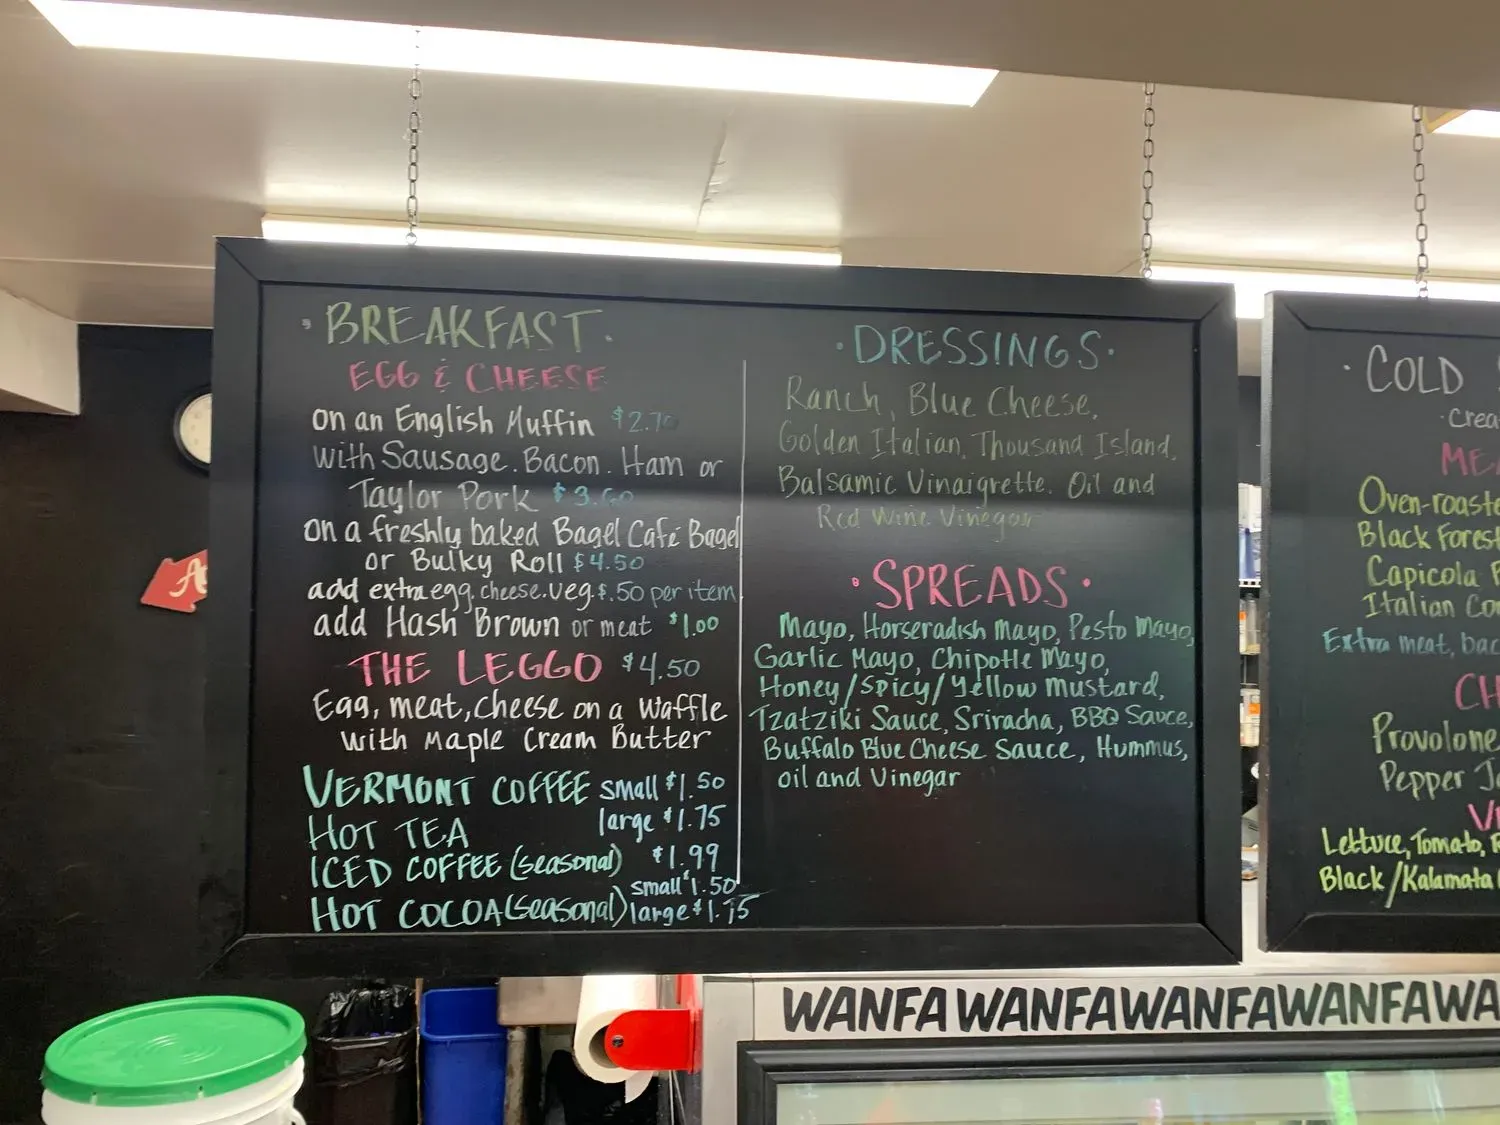 · BREAKFAST ·
EGG & CHEESE
on an English Muffin $2.70
with Sausage. Bacon. Ham or
Taylor Pork $3.60
on a freshly baked Bagel Café Bagel
or Bulky Roll $4.50
add extra egg. cheese. veg. $.50 per item
add Hash Brown or meat $1.00
THE LEGGO $4.50
Egg, meat, cheese on a waffle
with Maple Cream Butter
VERMONT COFFEE small $1.50
large $1.75
HOT TEA
ICED COFFEE (seasonal) $1.99
small $1.50
HOT COCOA (seasonal) large $1.75
· DRESSINGS ·
Ranch, Blue Cheese,
Golden Italian, Thousand Island,
Balsamic Vinaigrette. Oil and
Red Wine Vinegar
· SPREADS ·
Mayo, Horseradish Mayo, Pesto Mayo,
Garlic Mayo, Chipotle Mayo,
Honey/Spicy/Yellow Mustard,
Tzatziki Sauce, Sriracha, BBQ Sauce,
Buffalo Blue Cheese Sauce, Hummus,
oil and Vinegar
· COLD
Oven-roaste
Black Forest
Capicola
Italian Co
Extra meat, bac
Provolone
Pepper
Lettuce, Tomato,
Black/Kalamata
WANFAWANFAWANFAWANFAWA